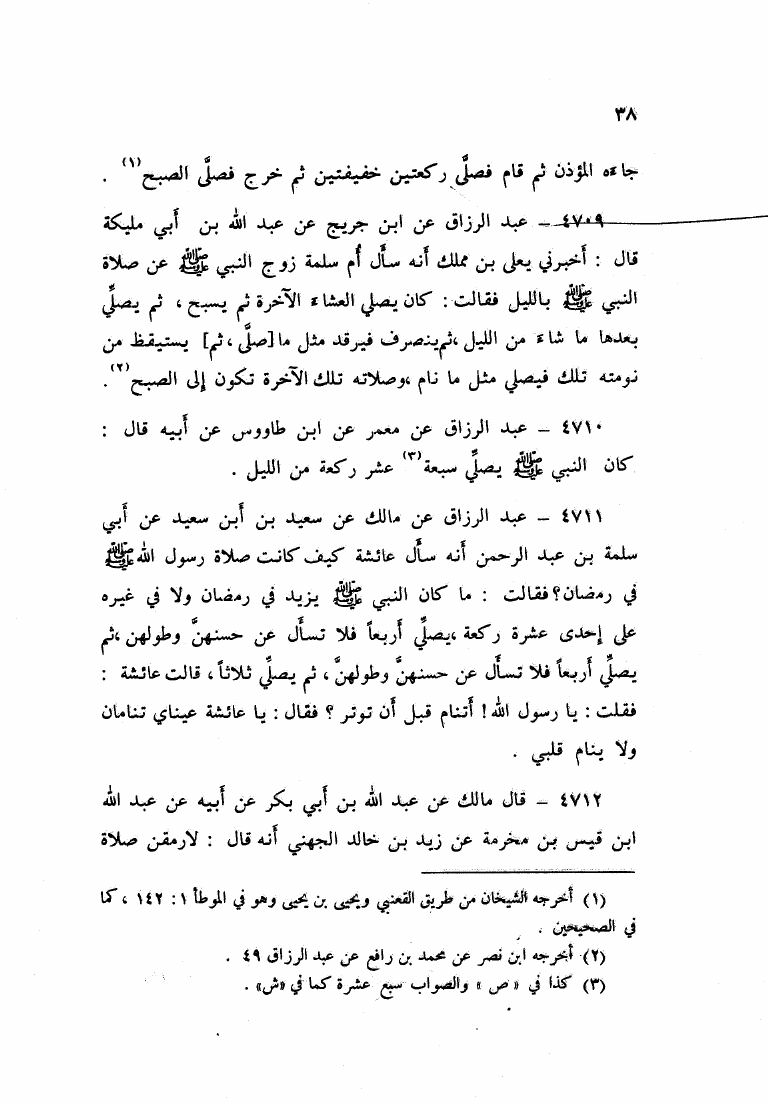 ٣٨
جاءه المؤذن ثم قام فصلَّى ركعتين خفيفتين ثم خرج فصلَّى الصبح(١) .
٤٧٠٩ – عبد الرزاق عن ابن جريج عن عبد الله بن أبي مليكة
قال : أخبرني يعلى بن مملك أنه سأل أُم سلمة زوج النبي ﷺ عن صلاة
النبي ﷺ بالليل فقالت : كان يصلي العشاء الآخرة ثم يسبح ، ثم يصلِّي
بعدها ما شاء من الليل ،ثم ينصرف فيرقد مثل ما [صلَّى ، ثم] يستيقظ من
نومته تلك فيصلي مثل ما نام ،وصلاته تلك الآخرة تكون إلى الصبح(٢) .
٤٧١٠ – عبد الرزاق عن معمر عن ابن طاووس عن أبيه قال :
كان النبي ﷺ يصلِّي سبعة(٣) عشر ركعة من الليل .
٤٧١١ – عبد الرزاق عن مالك عن سعيد بن أبن سعيد عن أبي
سلمة بن عبد الرحمن أنه سأل عائشة كيف كانت صلاة رسول الله ﷺ
في رمضان؟ فقالت : ما كان النبي ﷺ يزيد في رمضان ولا في غيره
على إحدى عشرة ركعة ،يصلِّي أربعاً فلا تسأل عن حسنهنَّ وطولهن ،ثم
يصلِّي أربعاً فلا تسأل عن حسنهنَّ وطولهنَّ ، ثم يصلِّي ثلاثاً ، قالت عائشة :
فقلت : يا رسول الله ! أتنام قبل أن توتر ؟ فقال : يا عائشة عيناي تنامان
ولا ينام قلبي .
٤٧١٢ – قال مالك عن عبد الله بن أبي بكر عن أبيه عن عبد الله
ابن قيس بن مخرمة عن زيد بن خالد الجهني أنه قال : لارمقن صلاة
(١) أخرجه الشيخان من طريق القعنبي ويحيى بن يحيى وهو في الموطأ ١ : ١٤٢ ، كما
في الصحيحين .
(٢) أخرجه ابن نصر عن محمد بن رافع عن عبد الرزاق ٤٩ .
(٣) كذا في « ص » والصواب سبع عشرة كما في «ش» .